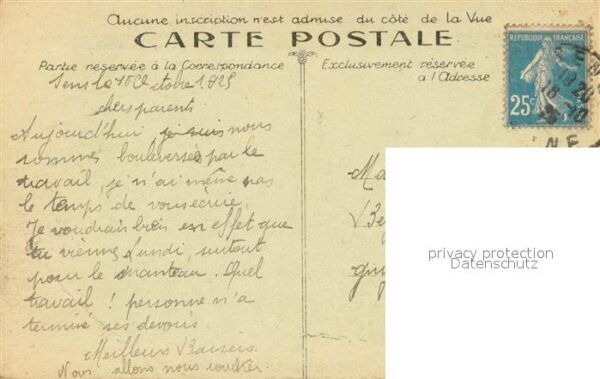 Aucune inscription n'est admise du côté de la Vue
CARTE POSTALE
Partie réservée à la Correspondance
Exclusivement réservée
à l'Adresse
Sens le 15 Octobre 1925
chers parents
Aujourd'hui je suis nous
sommes bouleversés par le
travail, je n'ai même pas
le temps de vous écrire.
Je voudrais bien en effet que
tu vienne Lundi, surtout
pour le manteau. Quel
travail ! personne n'a
terminé ses devoirs.
Meilleurs Baisers.
Nous allons nous coucher.
REPUBLIQUE FRANÇAISE
25c
privacy protection
Datenschutz